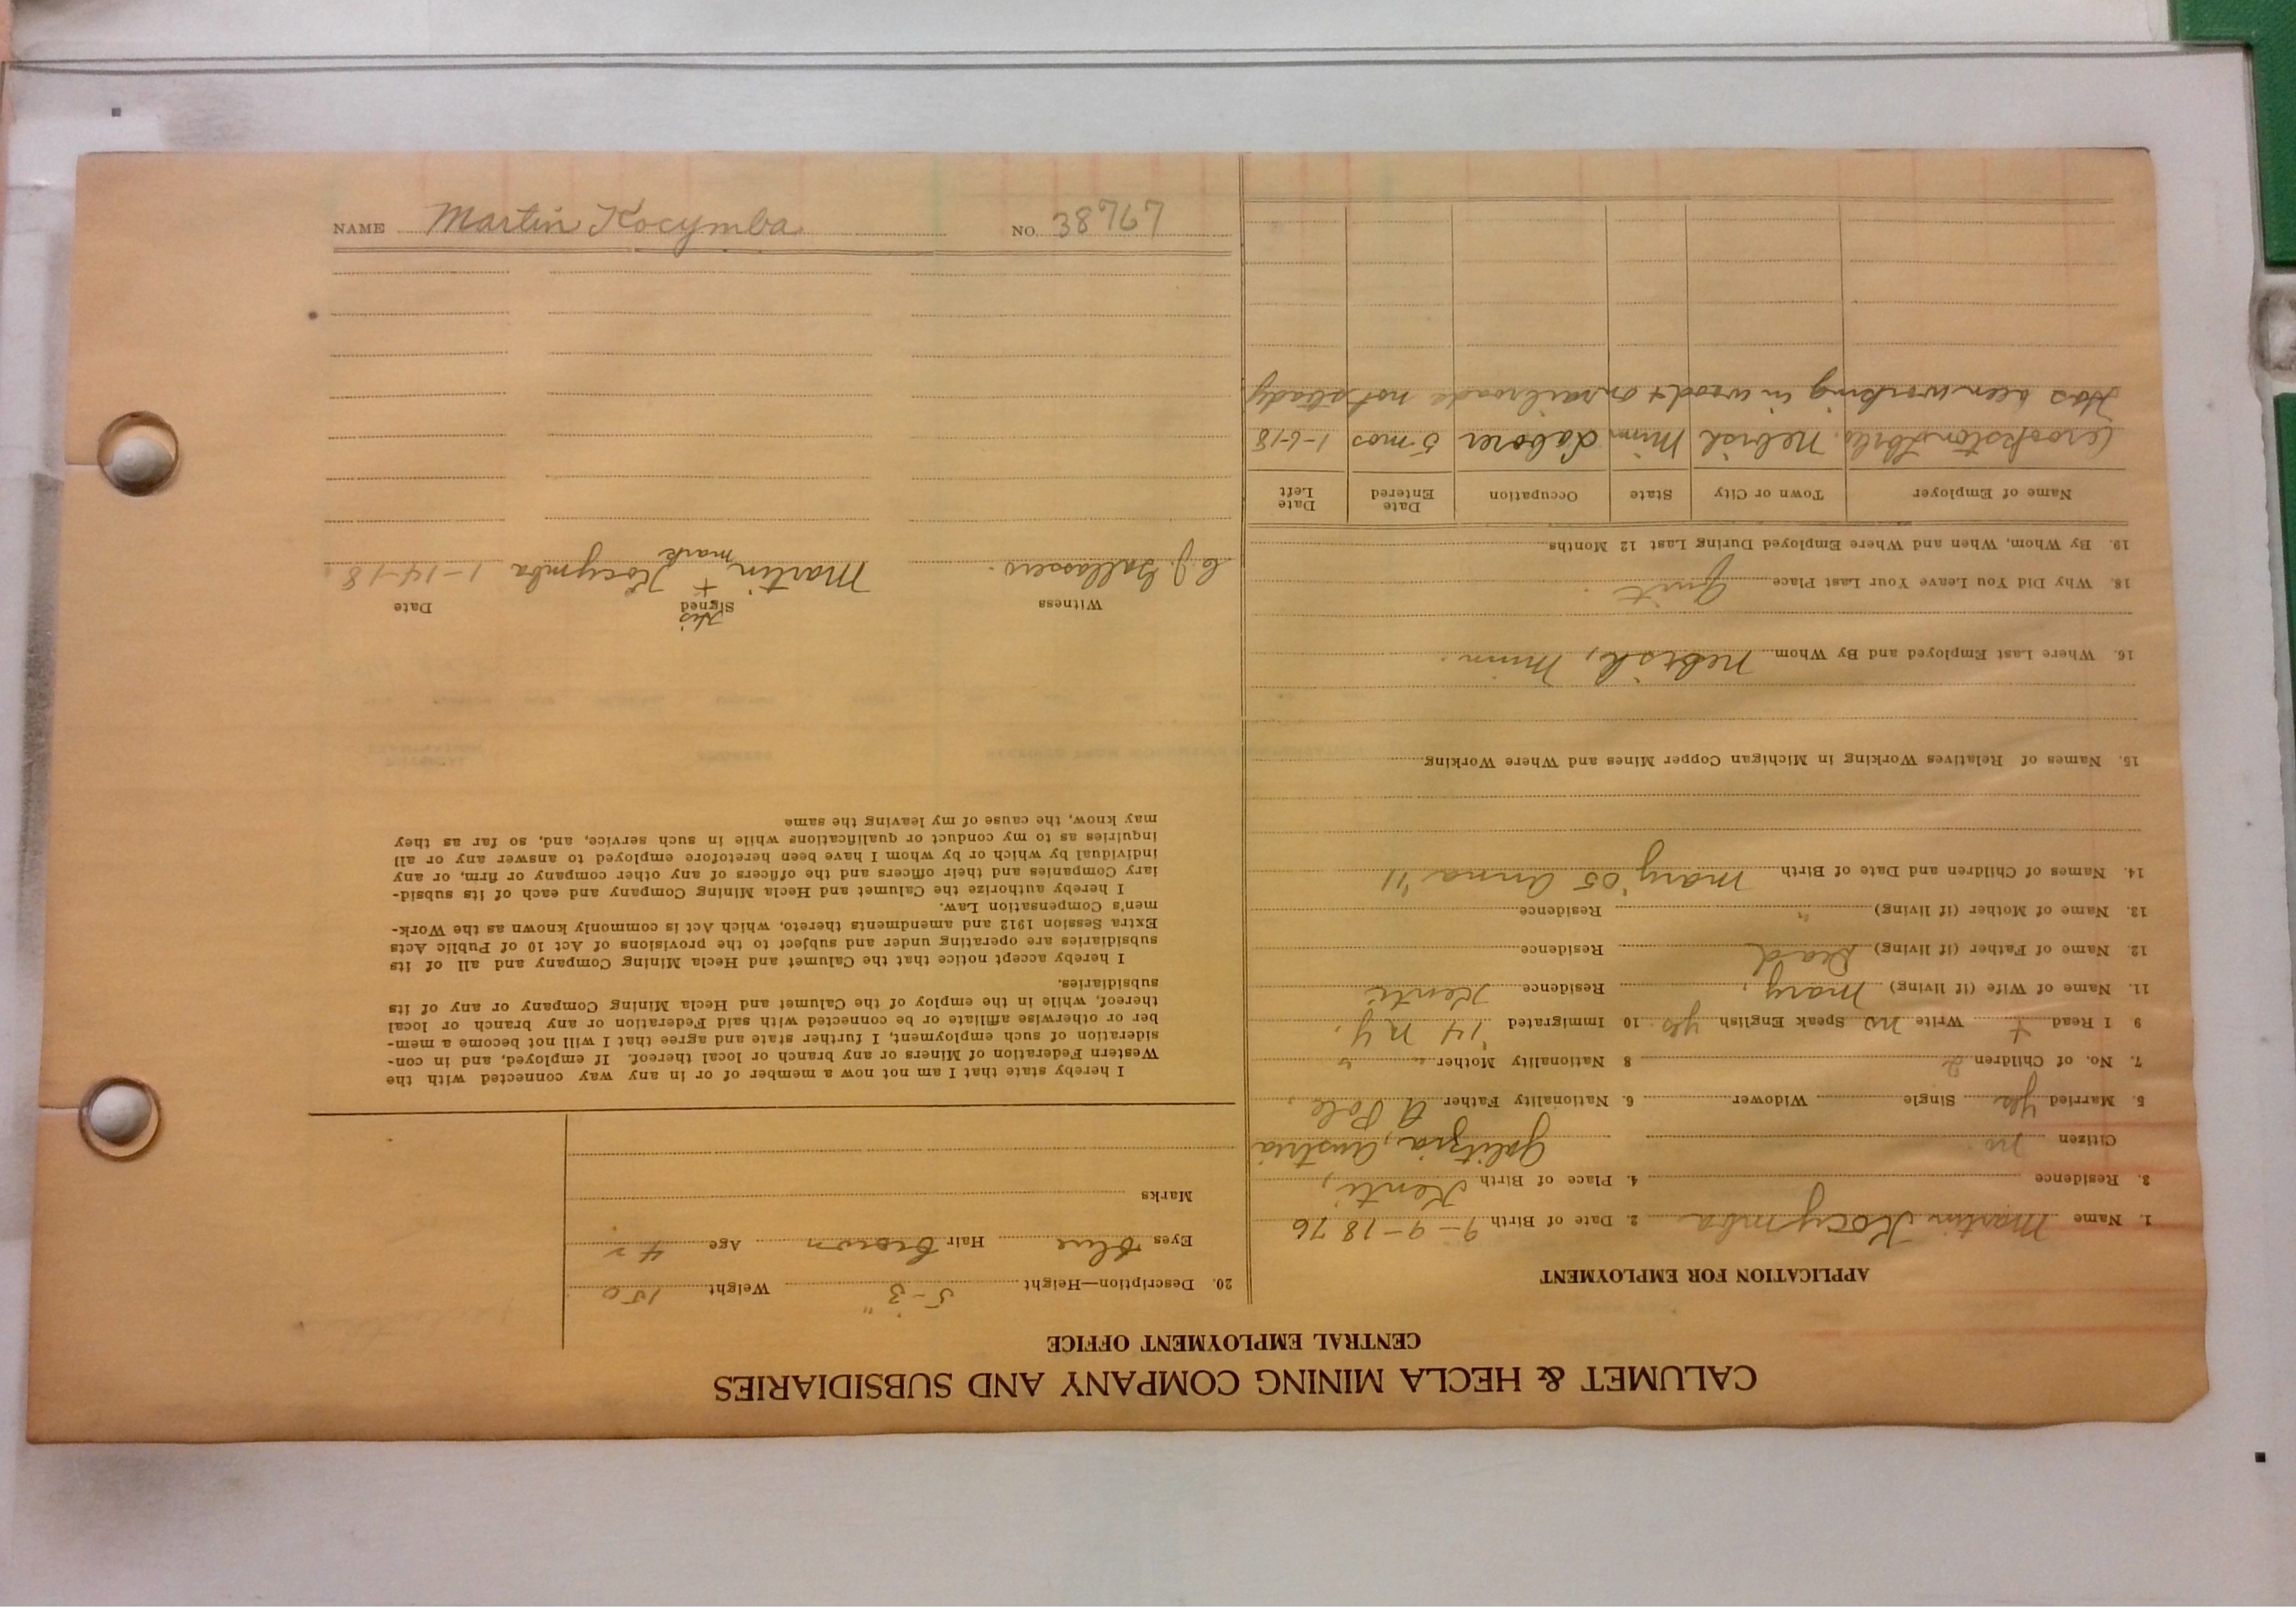 CALUMET & HECLA MINING COMPANY AND SUBSIDIARIES
CENTRAL EMPLOYMENT OFFICE
APPLICATION FOR EMPLOYMENT
1. Name Martin Kocymba 2. Date of Birth 9-9-1876
3. Residence 4. Place of Birth Kenti,
Citizen no. Galitzia, Austria
5. Married yes Single Widower 6. Nationality Father A Pole,
7. No. of Children 2 8 Nationality Mother "
9 I Read + Write no Speak English yes. 10 Immigrated '14 N.Y.
11. Name of Wife (if living) Mary, Residence Kenti
12. Name of Father (if living) Dead Residence
13. Name of Mother (if living) " Residence
14. Names of Children and Date of Birth Mary '05 Anna '11
15. Names of Relatives Working in Michigan Copper Mines and Where Working
16. Where Last Employed and By Whom Nebish, Minn.
18. Why Did You Leave Your Last Place Quit
19. By Whom, When and Where Employed During Last 12 Months
Name of Employer Town or City State Occupation Date Entered Date Left
Crookston Nebish Minn Laborer 5 mos 1-6-18
Has been working in woods + on railroads not steady
20. Description—Height 5-3" Weight 150
Eyes Blue Hair Brown Age 42
Marks
I hereby state that I am not now a member of or in any way connected with the
Western Federation of Miners or any branch or local thereof. If employed, and in con-
sideration of such employment, I further state and agree that I will not become a mem-
ber or otherwise affiliate or be connected with said Federation or any branch or local
thereof, while in the employ of the Calumet and Hecla Mining Company or any of its
subsidiaries.
I hereby accept notice that the Calumet and Hecla Mining Company and all of its
subsidiaries are operating under and subject to the provisions of Act 10 of Public Acts
Extra Session 1912 and amendments thereto, which Act is commonly known as the Work-
men's Compensation Law.
I hereby authorize the Calumet and Hecla Mining Company and each of its subsid-
iary Companies and their officers and the officers of any other company or firm, or any
individual by which or by whom I have been heretofore employed to answer any or all
inquiries as to my conduct or qualifications while in such service, and, so far as they
may know, the cause of my leaving the same
Witness Signed Date
His
C.J. Martin + Kocymba 1-14-18
mark
NAME Martin Kocymba NO. 38767